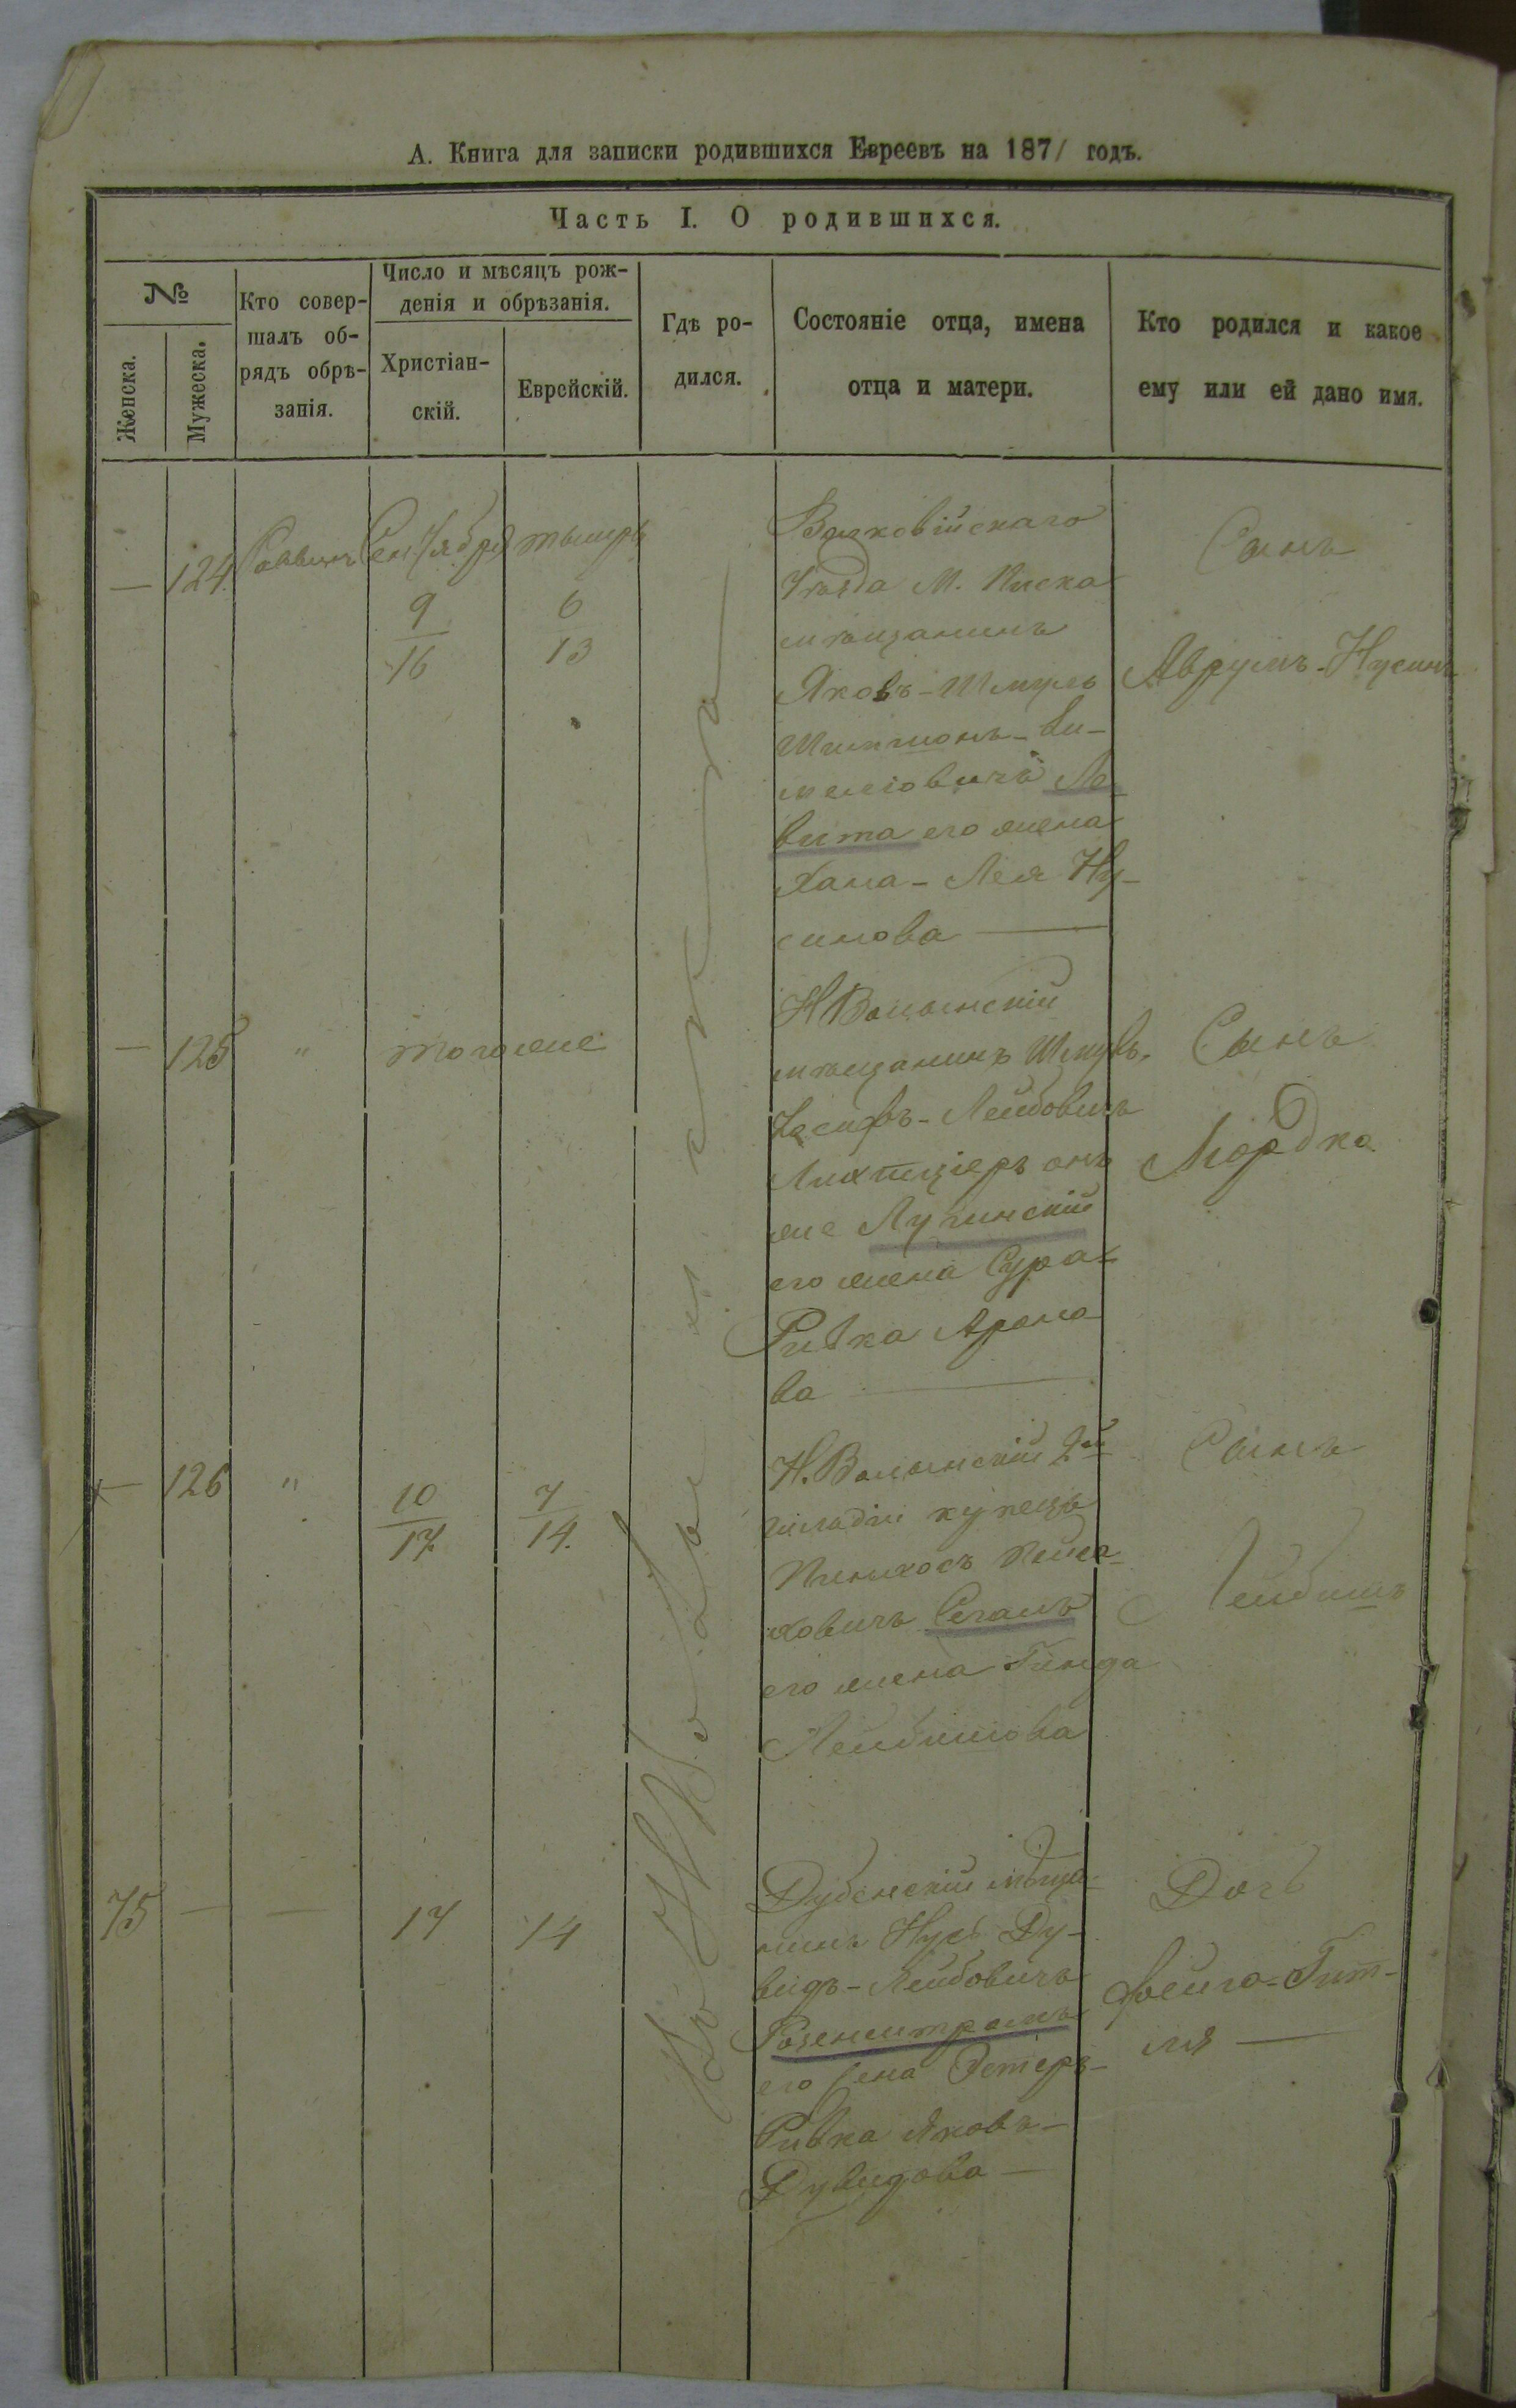 А. Книга для записки родившихся Евреевъ на 1871 годъ.
Часть I. О родившихся.
№
Женска.
Мужеска.
Кто совер-
шалъ об-
рядъ обрѣ-
занія.
Число и мѣсяцъ рож-
денія и обрѣзанія.
Христіан-
скій.
Еврейскій.
Гдѣ ро-
дился.
Состояніе отца, имена
отца и матери.
Кто родился и какое
ему или ей дано имя.
— 124
Раввинъ
Сентября
9
16
6
13
Уѣзда М. Писка
мѣщанинъ
Яковъ-Шмуль
вита его жена
Хана-Лея Ну-
синова —
Сынъ
Аврумъ-Нусинъ
— 125 " тогоже
НВолынскій
мѣщанинъ
Іосифъ-Лейбовичъ
онъ
же Лугинскій
его жена Сура-
Ривка Арано
ва —
Сынъ
Мордко
— 126 "
10
17.
7
14.
Н.Волынскій 2й
гильдіи купецъ
Пинхосъ Пейса-
ховичъ Сегалъ
его жена Гинда
Лейбишова
Сынъ
Лейбишъ
75 — — 17 14
Дубенскій мѣща-
нинъ Ду-
видъ-Лейбовичъ
его жена Эстеръ-
Ривка Яковъ-
Дувидова —
Дочь
Фейга-Гит-
ля —